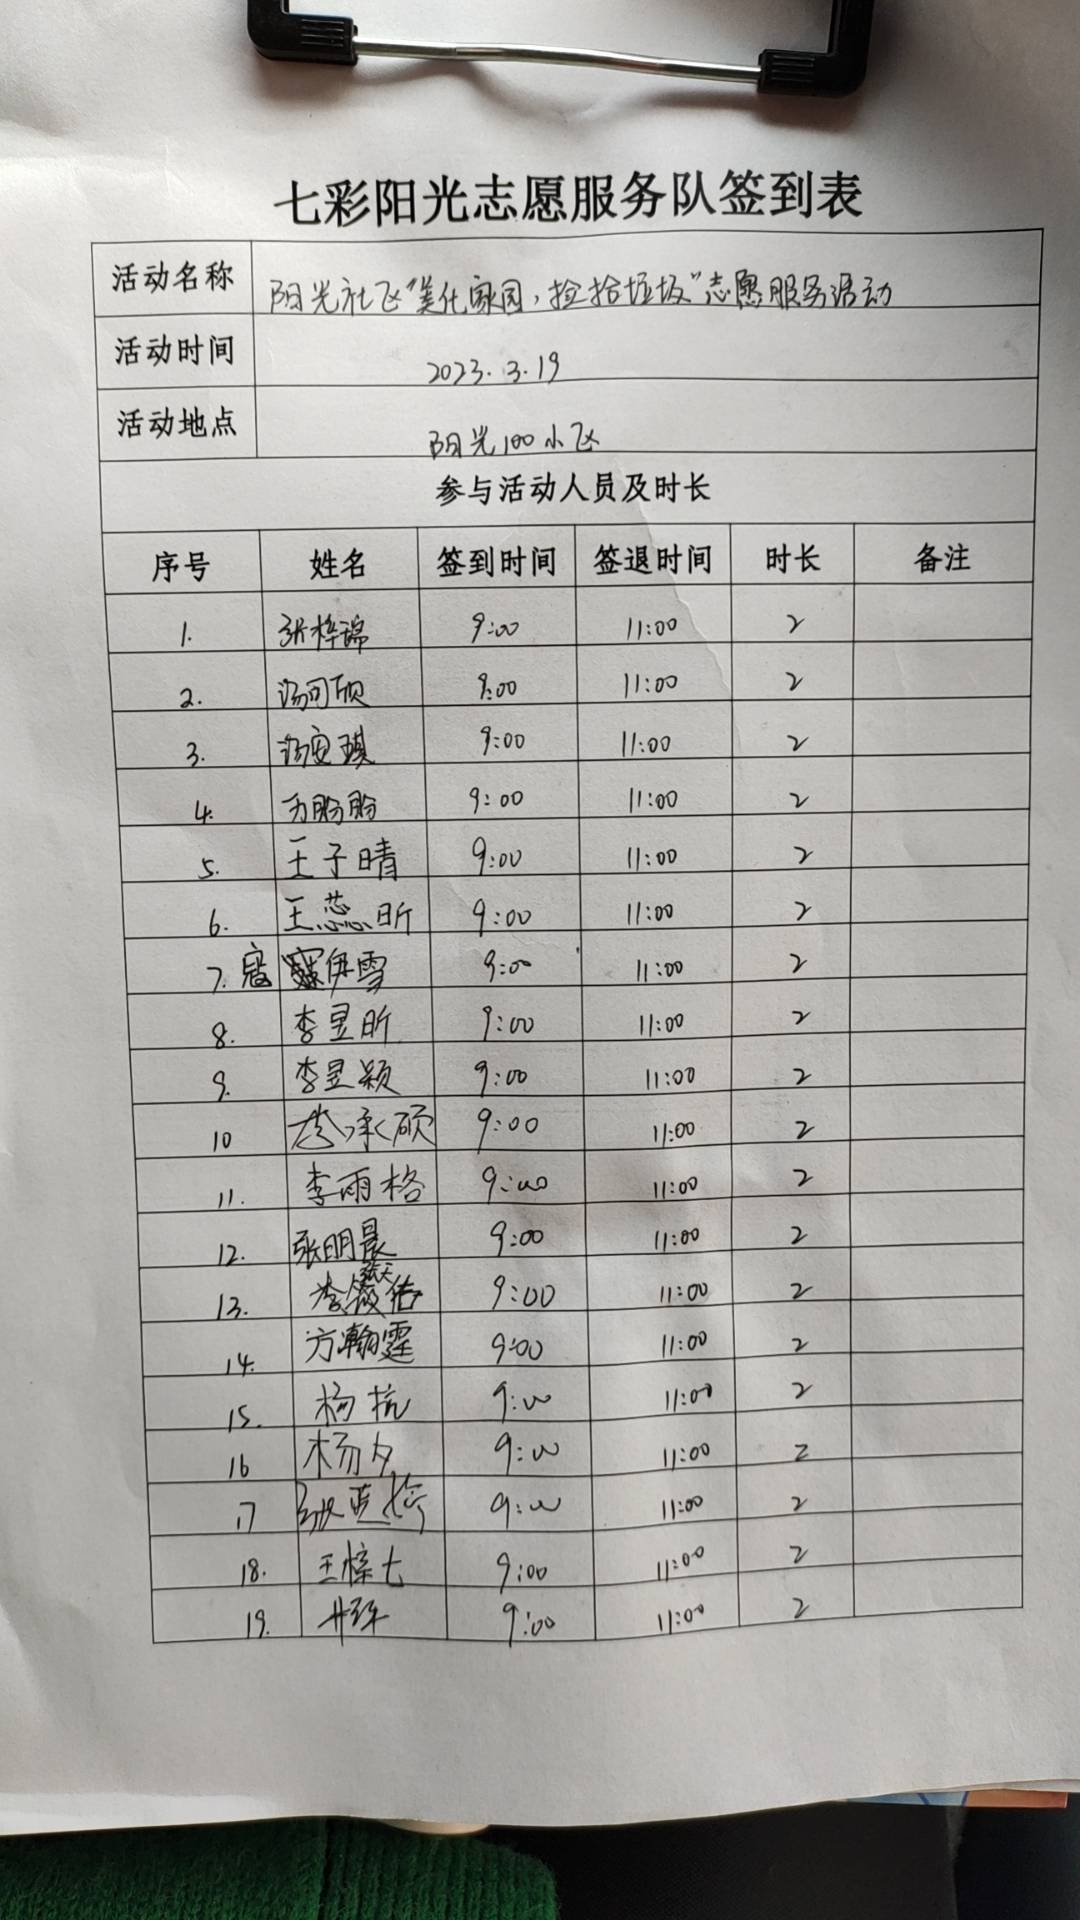 七彩阳光志愿服务队签到表
活动名称 阳光社区“美化家园，捡拾垃圾”志愿服务活动
活动时间 2023.3.19
活动地点 阳光100小区
参与活动人员及时长
序号 姓名 签到时间 签退时间 时长 备注
1. 张梓锦 9:00 11:00 2
2. 汤可欣 9:00 11:00 2
3. 汤安琪 9:00 11:00 2
4. 万盼盼 9:00 11:00 2
5. 王子晴 9:00 11:00 2
6. 王蕊昕 9:00 11:00 2
7. 寇伊雪 9:00 11:00 2
8. 李昱昕 9:00 11:00 2
9. 李昱颖 9:00 11:00 2
10 李承硕 9:00 11:00 2
11. 李雨格 9:00 11:00 2
12. 张明晨 9:00 11:00 2
13. 9:00 11:00 2
14. 方瀚霆 9:00 11:00 2
15. 杨杭 9:00 11:00 2
16 杨夕 9:00 11:00 2
17 9:00 11:00 2
18. 王梓七 9:00 11:00 2
19. 9:00 11:00 2